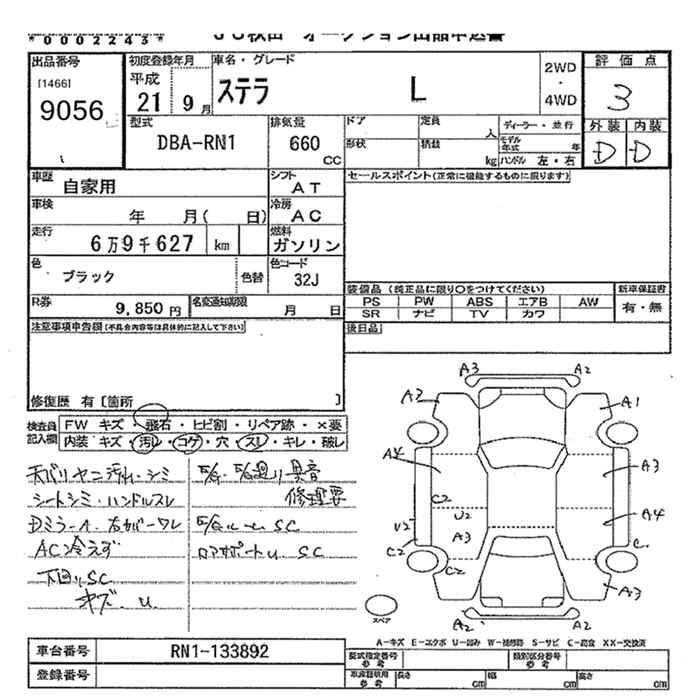 *0002243*
JU秋田 オークション出品申込書
出品番号
[1466]
9056
初度登録年月
平成
21 9月
車名・グレード
ステラ L
2WD
・
4WD
評価点
3
外装 内装
D D
型式
DBA-RN1
排気量
660
CC
ドア
定員
人
ディーラー・並行
モデル年式 年
形状
積載
kg
ハンドル 左・右
車歴
自家用
シフト
AT
セールスポイント(正常に機能するものに限ります)
車検
年 月( 日)
冷房
AC
走行
6万9千627 km
燃料
ガソリン
色
ブラック
色替
色コード
32J
装備品 (純正品に限り○をつけてください)
新車保証書
PS PW ABS エアB AW
有・無
SR ナビ TV カワ
R券
9,850円
名変通知期限
月 日
後日品
注意事項申告欄(不具合内容等は具体的に記入して下さい)
修復歴 有〔箇所 〕
検査員
記入欄
FW キズ・飛石・ヒビ割・リペア跡・×要
内装 キズ・汚レ・コゲ・穴・スレ・キレ・破レ
天バリヤニ汚れ・シミ
シートシミ・ハンドルスレ
AC冷えず
下回りSC
キズ.U
E/G、E/G廻り異音
修理要
ロアサポートU SC
A3 A2
A3 A1
A4 A3
C2
U2 U2 A4
A3
C2 C2 C
A3
A2 A2
スペア
A-キズ E-エクボ U-凹み W-補修跡 S-サビ C-腐食 XX-交換済
車台番号
RN1-133892
登録番号
型式指定番号
参考
類別区分番号
参考
車庫証明用
参考
長さ cm
幅 cm
高さ cm